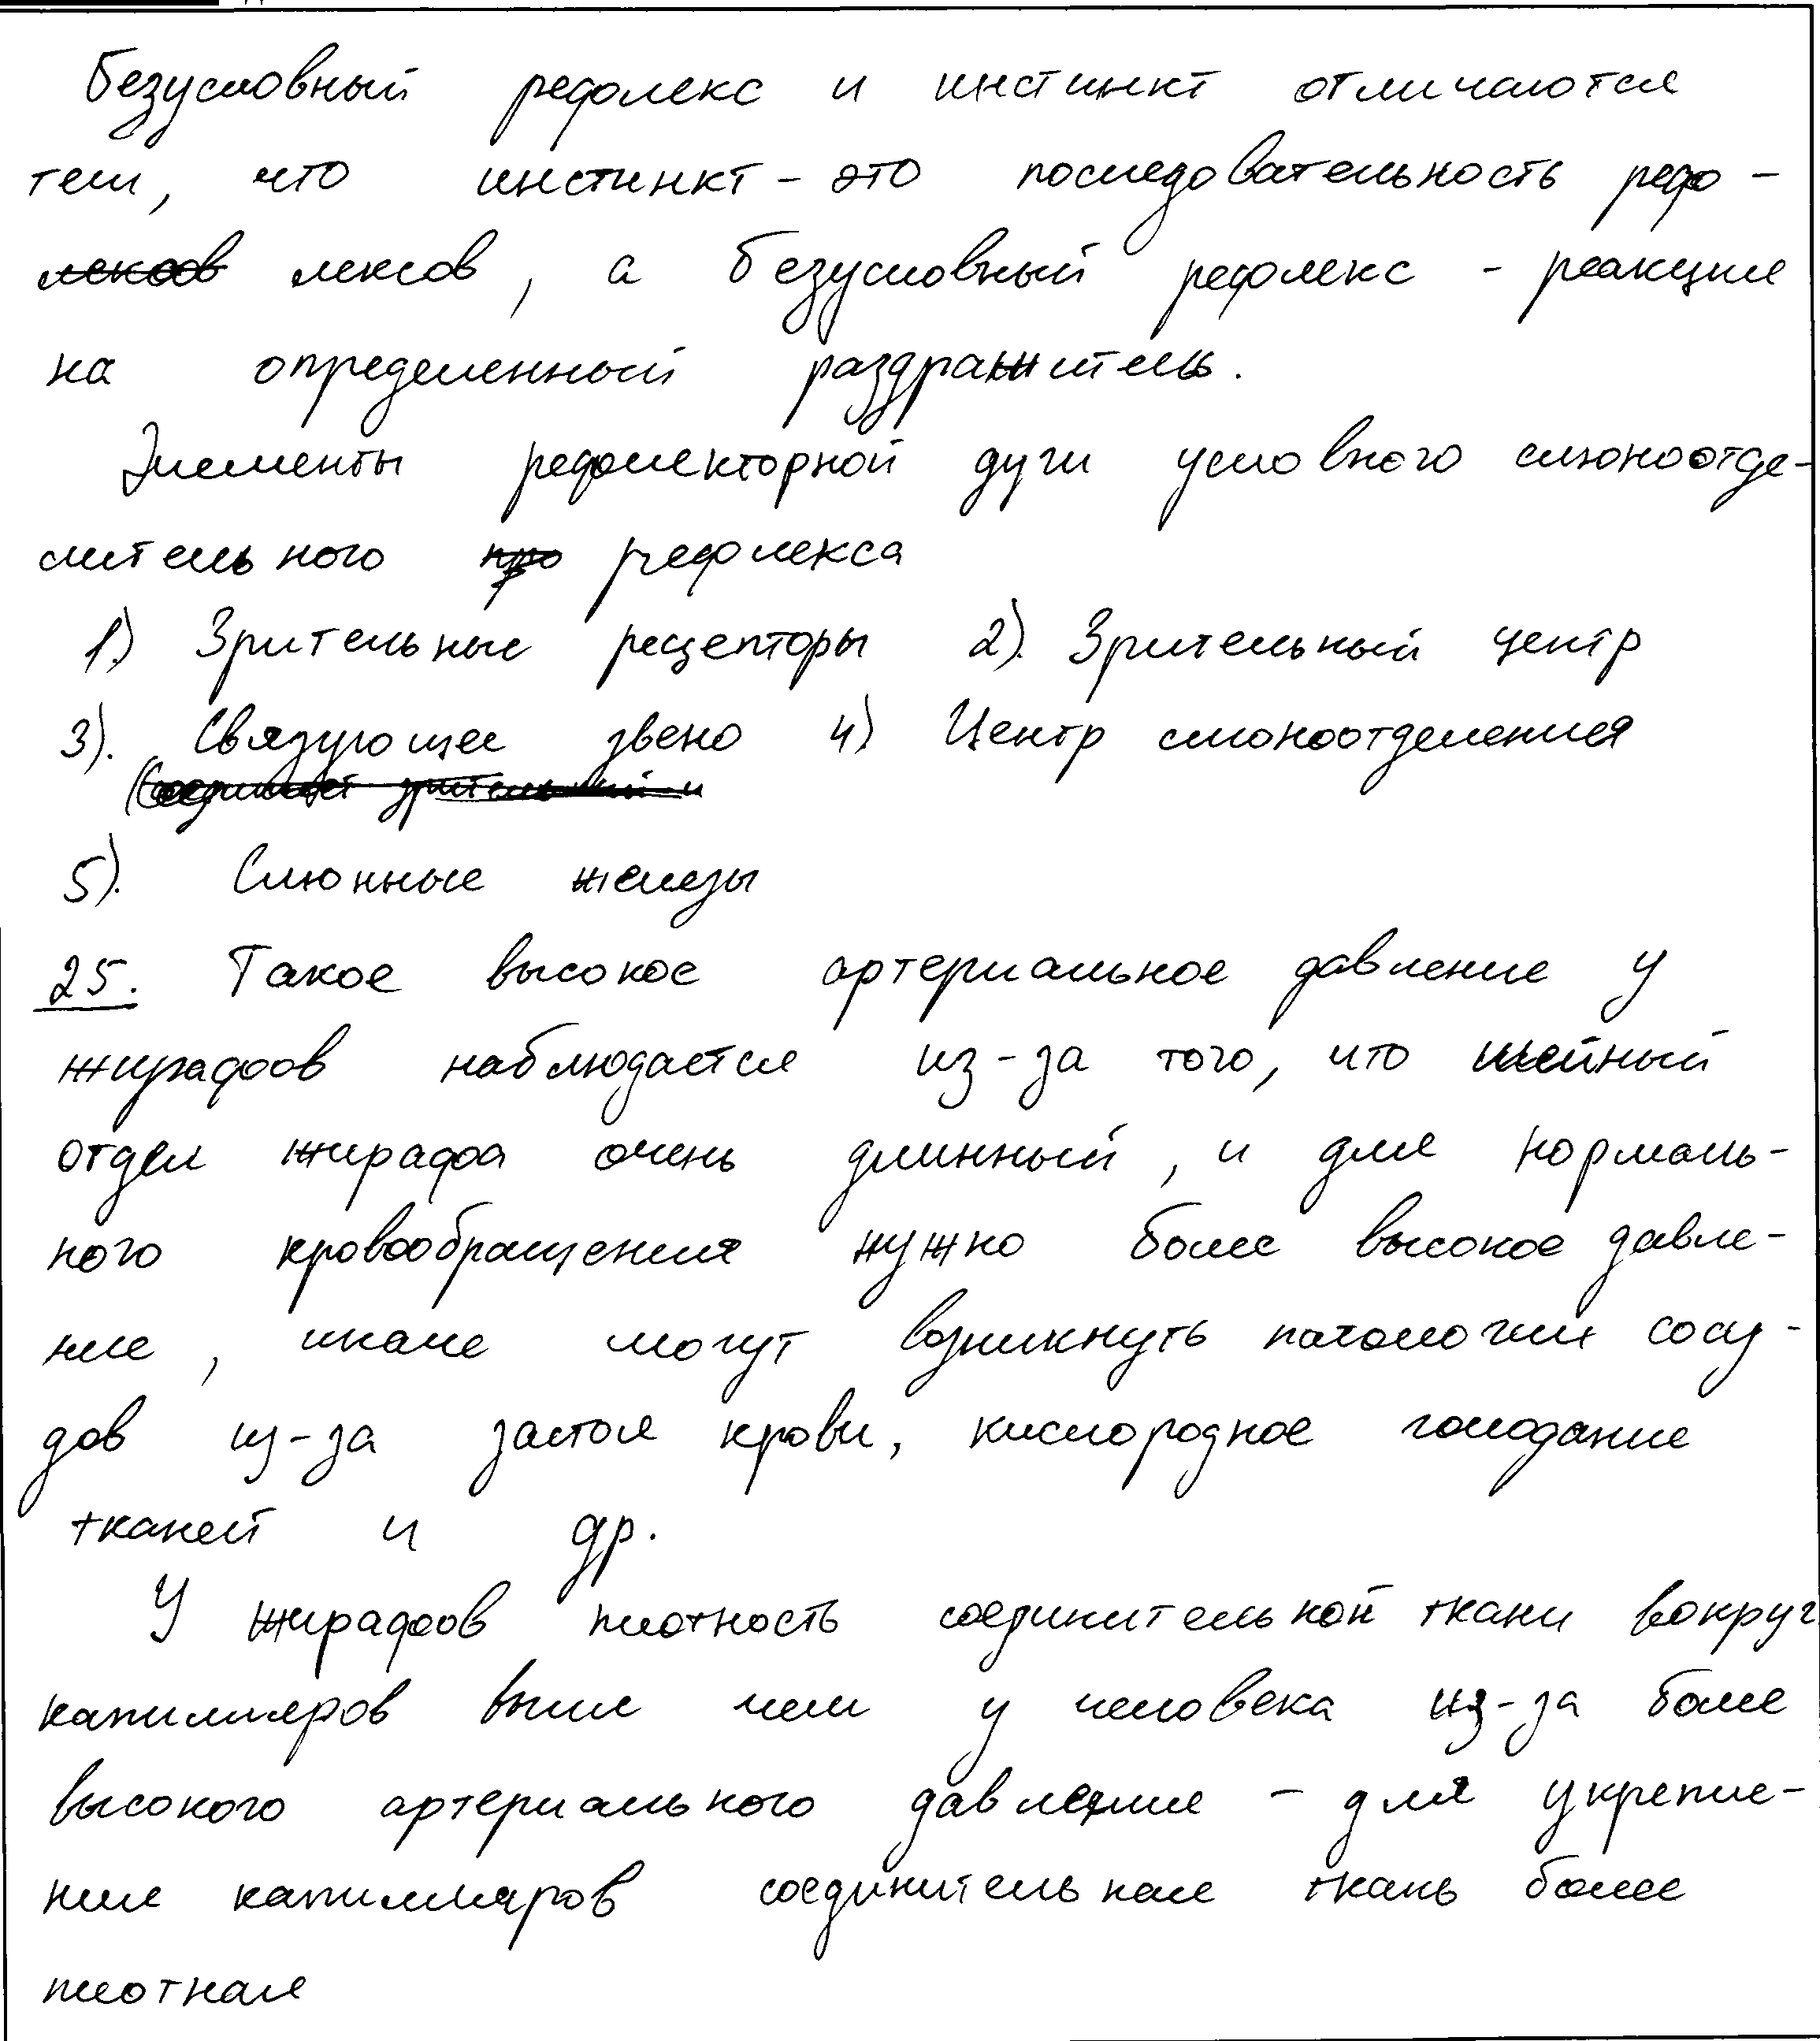 Безусловный рефлекс и инстинкт отличаются
тем, что инстинкт - это последовательность реф-
лексов лексов, а безусловный рефлекс - реакция
на определенный раздражитель.
Элементы рефлекторной дуги условного слюноотде-
лительного про рефлекса
1) Зрительные рецепторы 2). Зрительный центр
3). Связующее звено 4) Центр слюноотделения
(Соединяет зрительный и
5). Слюнные железы
25. Такое высокое артериальное давление у
жирафов наблюдается из-за того, что шейный
отдел жирафа очень длинный, и для нормаль-
ного кровообращения нужно более высокое давле-
ние, иначе могут возникнуть патологии сосу-
дов из-за застоя крови, кислородное голодание
тканей и др.
У жирафов плотность соединительной ткани вокруг
капилляров выше чем у человека из-за более
высокого артериального давления - для укрепле-
ния капилляров соединительная ткань более
плотная